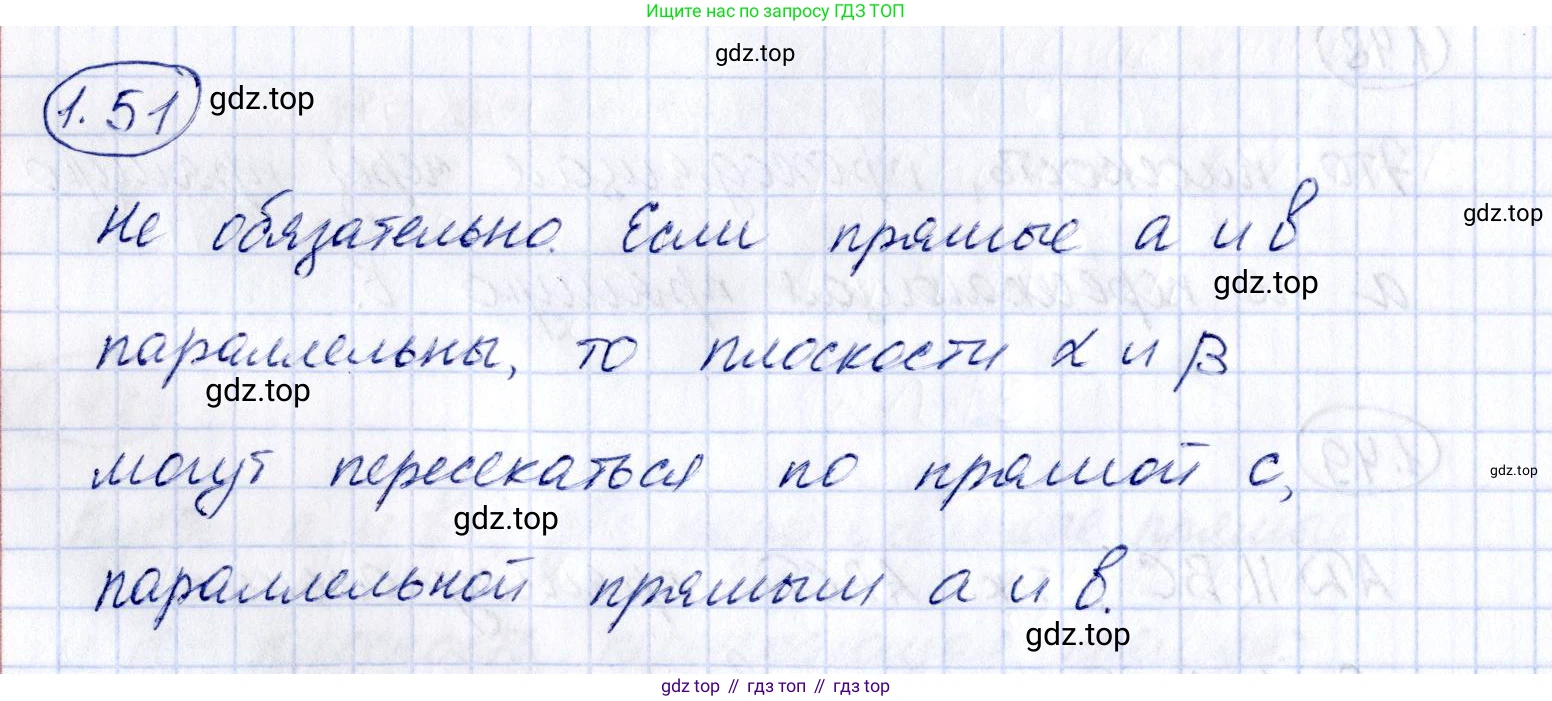 Ищите нас по запросу ГДЗ ТОП
gdz.top
1.51 gdz.top
Не обязательно. Если прямые a и b
gdz.top
gdz.top
параллельны, то плоскости α и β
gdz.top
могут пересекаться по прямой c,
gdz.top
gdz.top
параллельной прямым a и b.
gdz.top
gdz top // гдз топ // гdz top